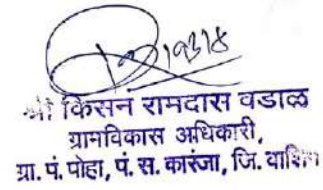 श्री किसन रामदास वडाळ
ग्रामविकास अधिकारी,
ग्रा. पं. पोहा, पं. स. कारंजा, जि. वाशिम